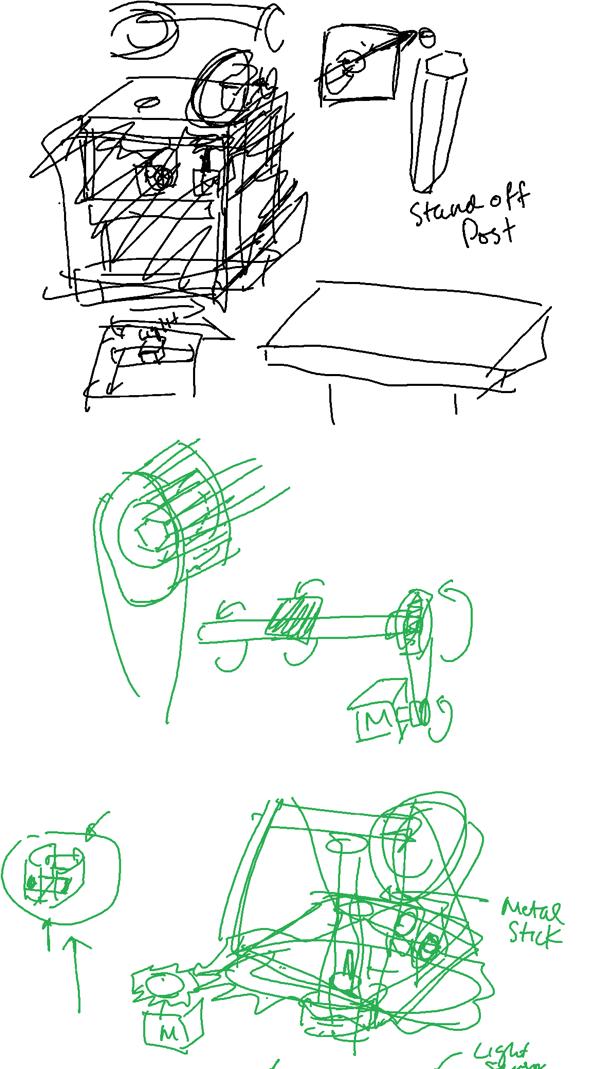 Stand off
Post
Light
M
Metal
Stick
M
Light